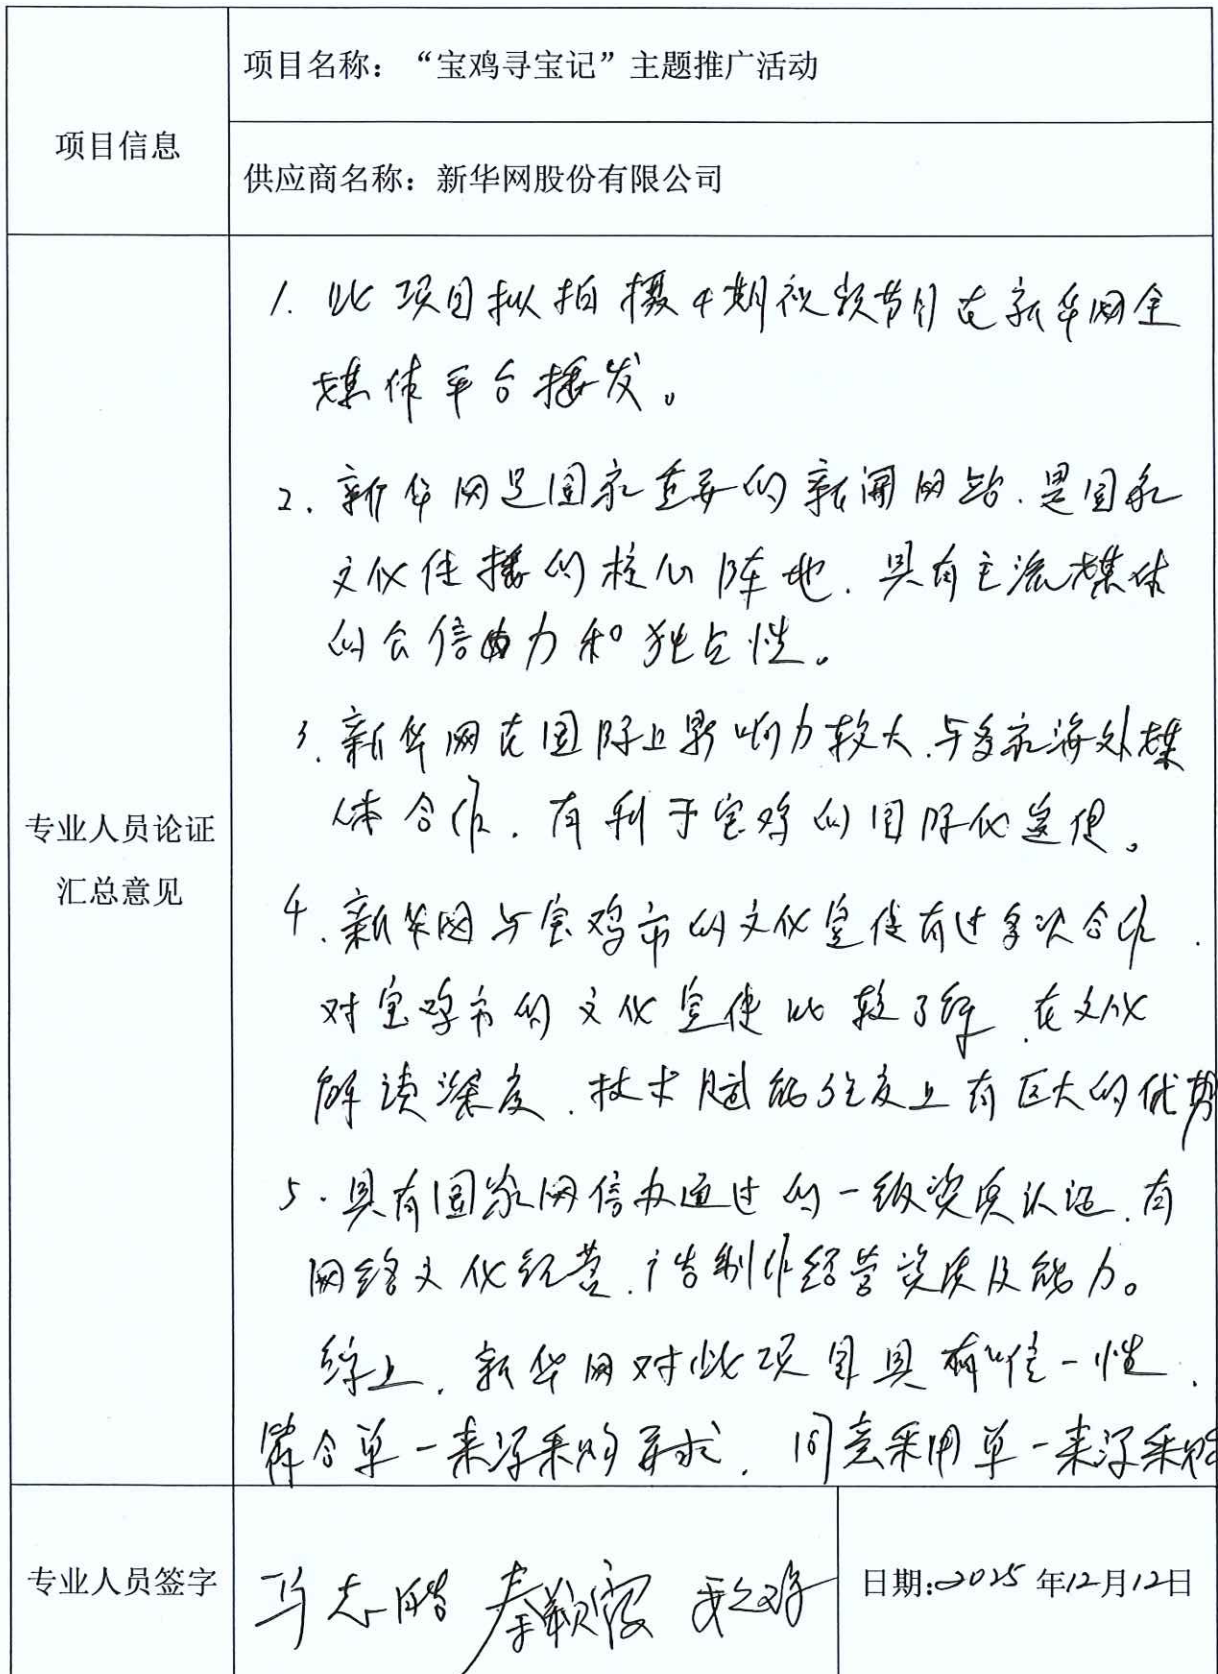 项目信息
项目名称：“宝鸡寻宝记”主题推广活动
供应商名称：新华网股份有限公司
专业人员论证
汇总意见
1. 此项目拟拍摄4期视频节目在新华网全
媒体平台播发。
2. 新华网是国家重要的新闻网站.是国家
文化传播的核心阵地.具有主流媒体
的公信力和独占性。
3. 新华网在国际上影响力较大.与多家海外媒
体合作.有利于宝鸡的国际化宣传。
4. 新华网与宝鸡市的文化宣传有过多次合作.
对宝鸡市的文化宣传比较了解.在文化
解读深度.技术赋能强度上有巨大的优势
5. 具有国家网信办通过的一级资质认证.有
网络文化经营.广告制作经营资质及能力。
综上.新华网对此项目具有唯一性.
符合单一来源采购要求.同意采用单一来源采购
专业人员签字
马志
日期:2025年12月12日